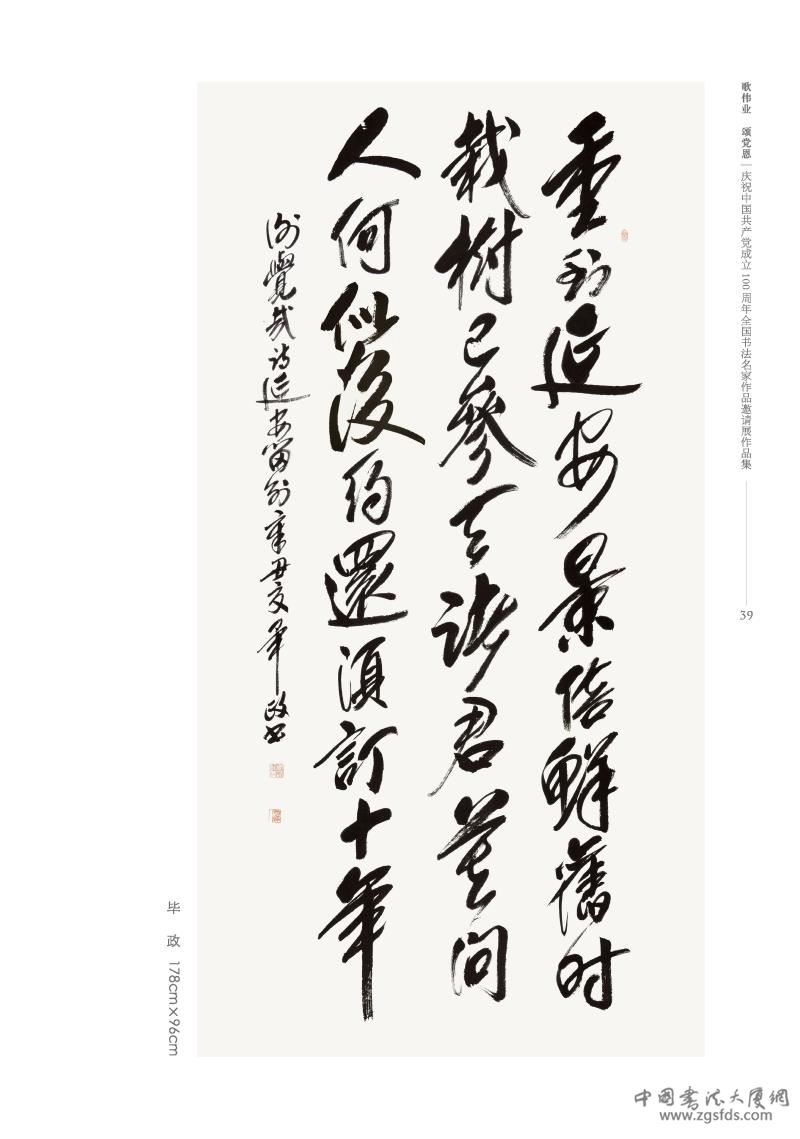 重到延安景倍鲜舊时
栽树已參天諸君莫问
人何似後约還須訂十年
谢觉哉诗延安留别辛丑夏毕政书
歌伟业 颂党恩｜庆祝中国共产党成立100周年全国书法名家作品邀请展作品集
39
毕 政 178cm×96cm
中国书法大厦網
www.zgsfds.com